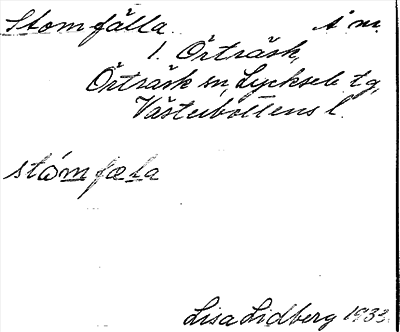 Stomfälla t° nr.
1. Örträsk,
Örträsk sn, Lycksele tg,
Västerbottens l.
stómfæla
Lisa Lidberg 1933.